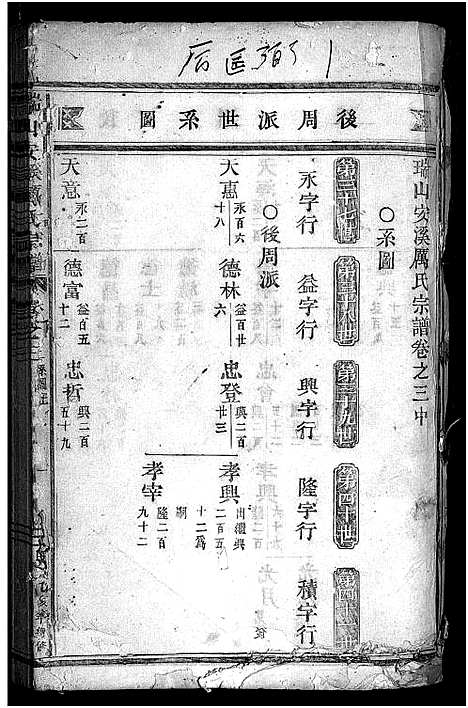 後周派世系圖
瑞山安溪厲氏宗譜卷之三中
〇系圖
第三十七世
第三十八世
第三十九世
第四十世
第四十一世
永字行
益字行
興字行
隆字行
積字行
〇後周派
天惠 永百六十八
德林 益百廿六
忠登 興二百廿三
孝興 出繼興二百五十二為嗣
孝宰 隆二百九十二
天意 永二百
德富 益百五十二
忠哲 興二百五十九